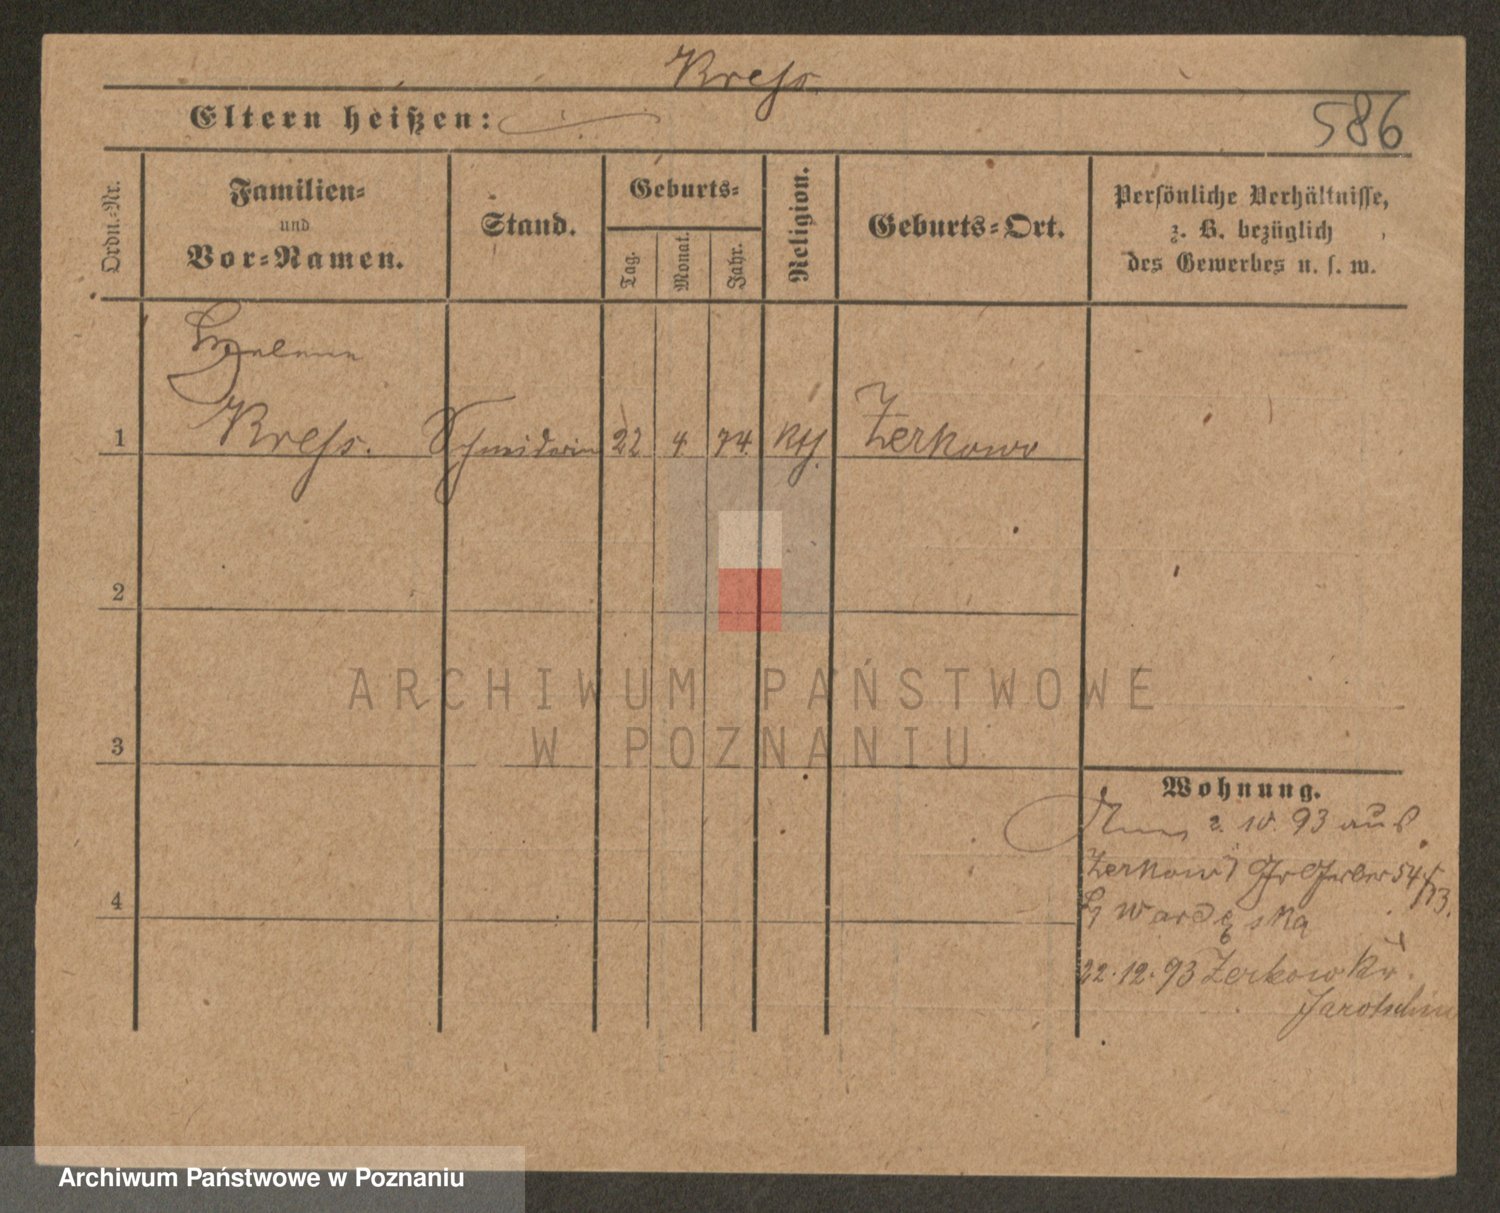 Kreſs.
Eltern heißen:
586
Ordn.-Nr.
Familien-
und
Vor-Namen.
Stand.
Geburts-
Tag.
Monat.
Jahr.
Religion.
Geburts-Ort.
Persönliche Verhältnisse,
z. B. bezüglich
des Gewerbes u. s. w.
1
Kreſs. Schneiderin 22 4 74 kth. Zerkowo
2
3
4
ARCHIWUM PAŃSTWOWE
W POZNANIU
Wohnung.
2. 10. 93 aus
Zerkow Gr Gerber 54/53.
Wardęska
22.12.93 Zerkow Kr.
Jarotschin
Archiwum Państwowe w Poznaniu